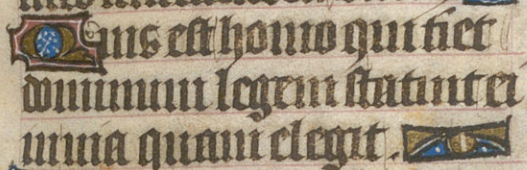 Quis est homo qui tiet
dominum legem statuit ei
in uia quam elegit.